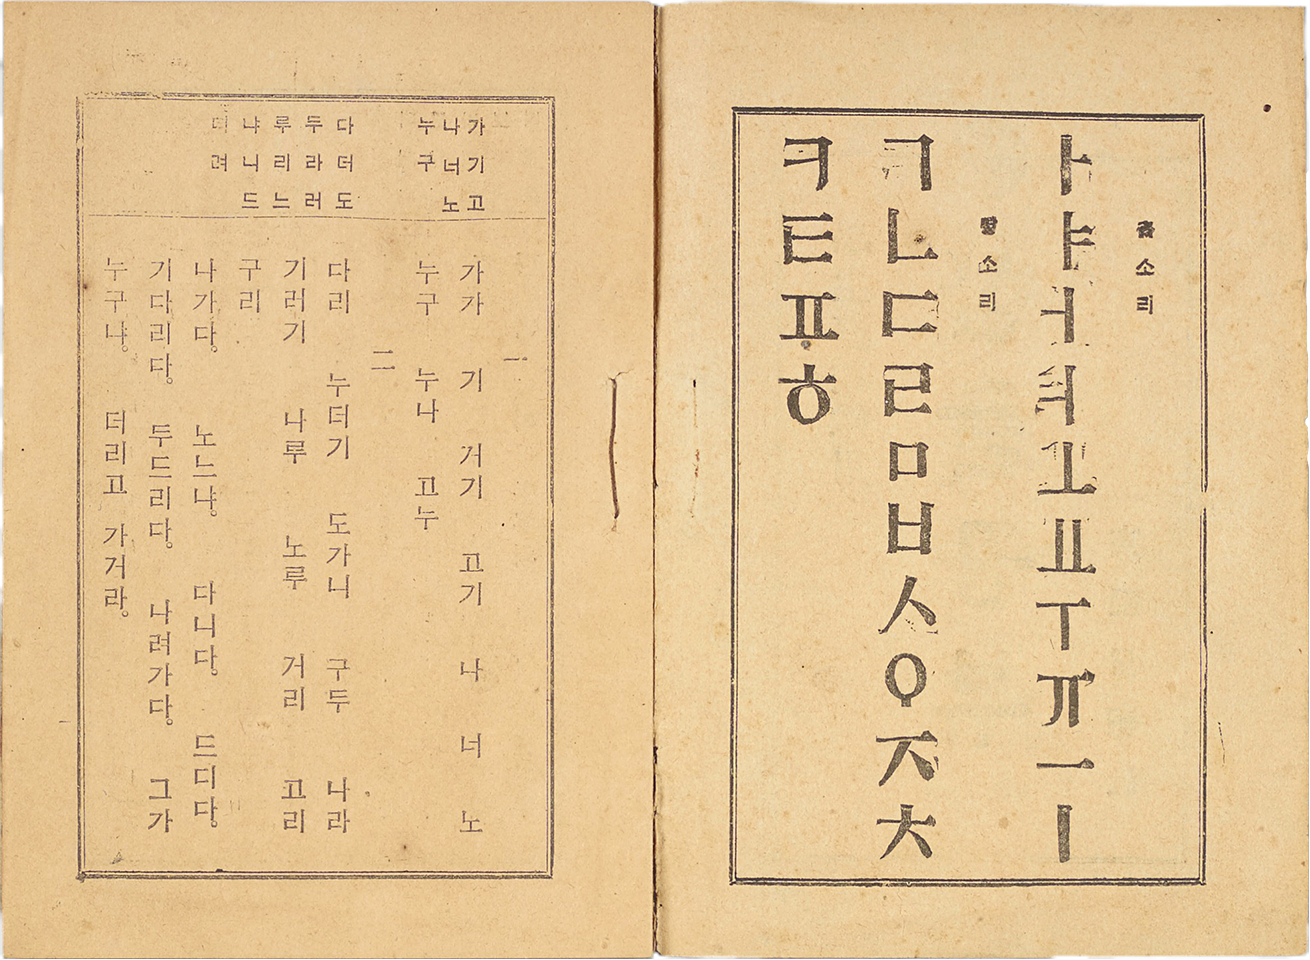 홀소리
ㅏㅑㅓㅕㅗㅛㅜㅠㅡㅣ
닿소리
ㄱㄴㄷㄹㅁㅂㅅㅇㅈㅊ
ㅋㅌㅍㅎ
가기고
나너노
누구
다더도
두라러
루리느
냐니드
디려
一
가가 기 거기 고기 나 너 노
누구 누나 고누
二
다리 누더기 도가니 구두 나라
기러기 나루 노루 거리 고리
구리
나가다。 노느냐。 다니다。 드디다。
기다리다。 두드리다。 나려가다。 그가
누구냐。 더리고 가거라。